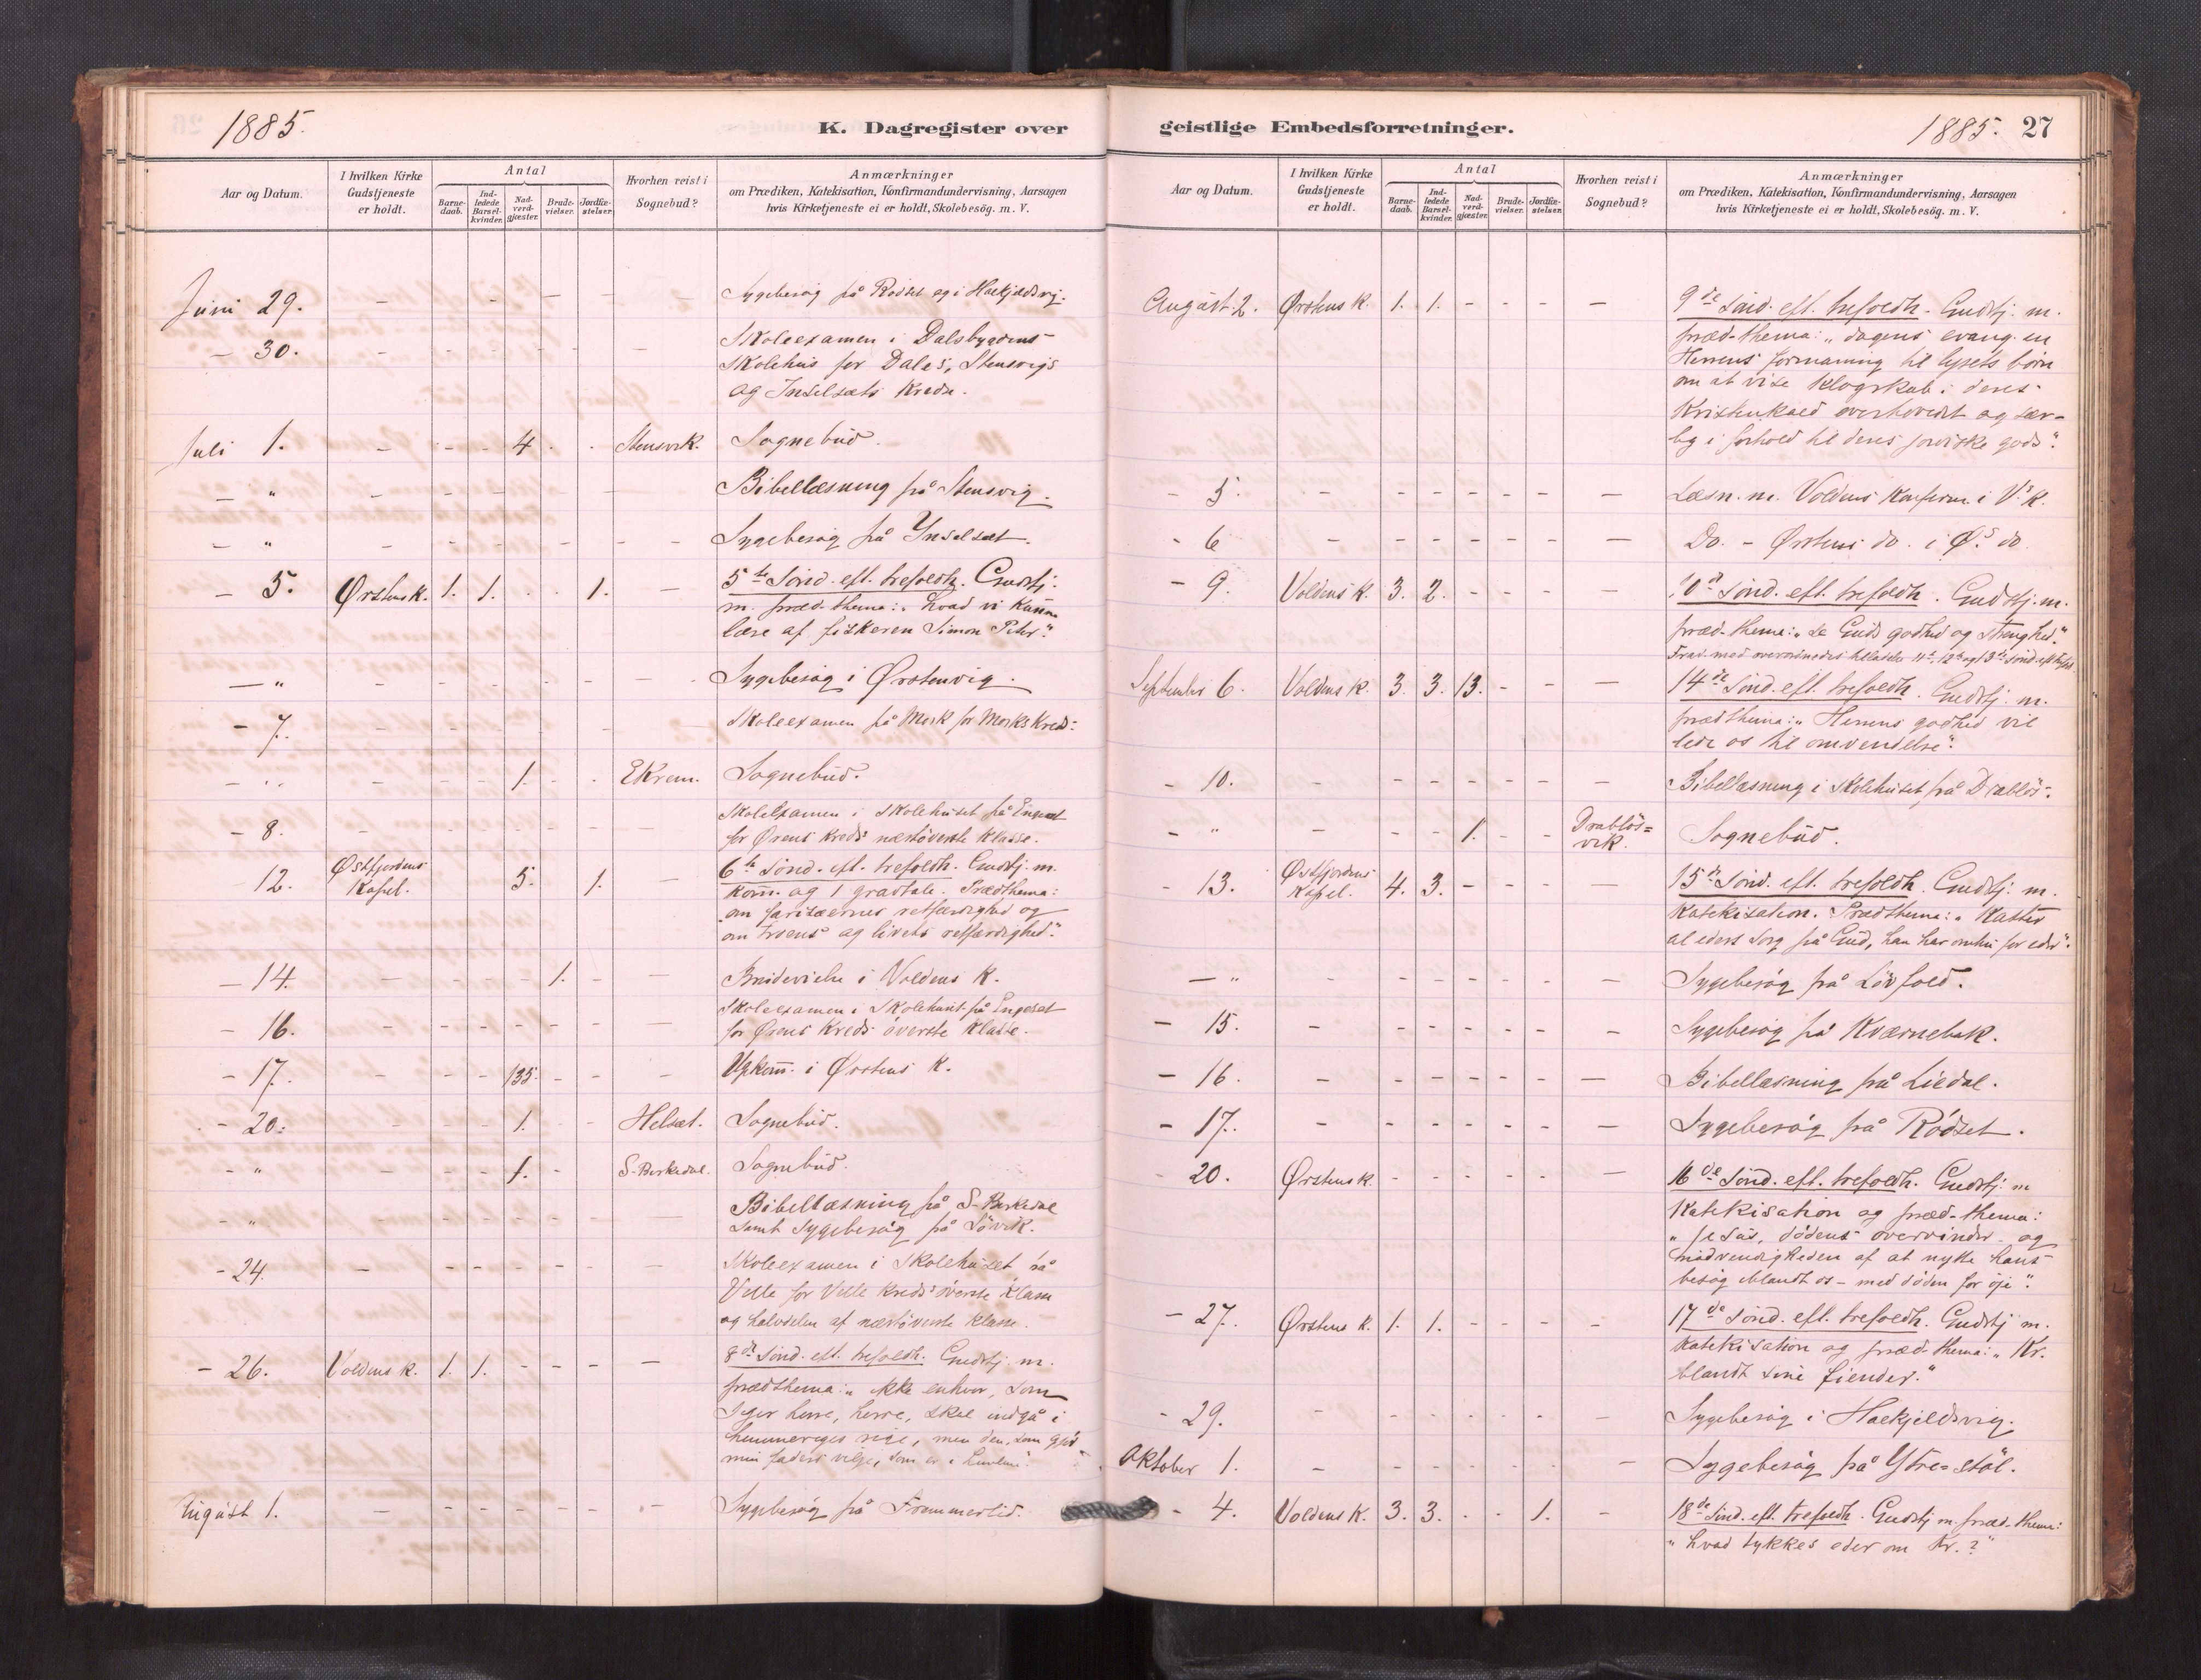 1885.
K. Dagregister over
Aar og Datum.
I hvilken Kirke Gudstjeneste er holdt.
Antal
Barnedaab.
Indledede Barselkvinder.
Nadverdgjester.
Brudevielser.
Jordfæstelser.
Hvorhen reist i Sognebud?
Anmærkninger
om Prædiken, Katekisation, Konfirmandundervisning, Aarsagen
hvis Kirketjeneste ei er holdt, Skolebesög. m. V.
Juni 29. - - - - - Sygebesög på Rødset og i Haekjedsvig.
- 30. - - - - - - - Skoleexamen i Dalsbygdens
Skolehus for Dales, Stensvigs
og Inselsets Kredse.
Juli 1. - - - 4 - - Stensvik. Sognebud.
- " - - - - - - - Bibellæsning på Stensvig.
- " - - - - - - - Sygebesög på Ynselset.
- 5. Ørstens k. 1. 1. - - 1. - 5te Sönd. eft. trefoldh. Gudstj.
m. præd. thema: "hvad vi kunne
lære af fiskeren Simon Peter".
- " - - - - - - - Sygebesög i Ørstenvig.
- 7. - - - - - - - Skoleexamen på Mork for Morks Kreds.
- " - - - 1. - - Ekrem. Sognebud.
- 8. - - - - - - - Skoleexamen i Skolehuset på Engeset
for Ørens Kreds' næstöverste klasse.
12. Østfjordens Kapel. 5. 1. - 6te Sönd. eft. trefoldh. Gudstj. m.
Kom. og 1 gravtale. Prædthema:
"om farisæernes retfærdighed og
om troens og livets retfærdighed".
- 14. - - - - 1. - - Brudevielse i Voldens K.
- 16. - - - - - - - Skoleexamen i Skolehuset på Engeset
for Ørens Kreds' överste Klasse.
- 17. - - - 135. - - - Ugkom. i Ørstens K.
- 20. - - - 1. - - Helset. Sognebud.
- " - - - 1. - S-Berkedal. Sognebud.
- " - - - - - - - Bibellæsning på S-Berkedal
samt Sygebesög på Lövik.
- 24. - - - - - - - Skoleexamen i Skolehuset på
Velle for Velle Kreds' överste Klasse
og halvdelen af næstöverste klasse.
- 26. Voldens k. 1. 1. - - - - 8de Sönd. eft. trefoldh. Gudstj. m.
prædthema: "ikke enhver, som
siger herre, herre, skal indgå i
himmeriges rige, men den, som gjör
min faders vilje, som er i himlene".
August 1. - - - - - - - Sygebesög på Frammerlid.
geistlige Embedsforretninger.
1885. 27
Aar og Datum.
I hvilken Kirke Gudstjeneste er holdt.
Antal
Barnedaab.
Indledede Barselkvinder.
Nadverdgjester.
Brudevielser.
Jordfæstelser.
Hvorhen reist i Sognebud?
Anmærkninger
om Prædiken, Katekisation, Konfirmandundervisning, Aarsagen
hvis Kirketjeneste ei er holdt, Skolebesög. m. V.
August 2. Ørstens K. 1. 1. - - - - 9de Sönd. eft. trefoldh. Gudstj. m.
præd-thema: "dagens evang. en
Herrens formaning til lysets börn
om at vise klogskab i deres
Kristenkald overhovedet og sær-
lig i forhold til deres jordiske gods".
- 5. - - - - - - - Læsn. m. Voldens Konfirm. i V.s K.
- 6 - - - - - - - Do. - Ørstens do. i Ø.s do.
- 9. Voldens K. 3. 2. - - - - 10de Sönd. eft. trefoldh. Gudstj. m.
præd-thema: "se Guds godhed og strenghed".
Frav. med overordnedes tilladelse 11te, 12te og 13de sönd. eft. trefoldh.
September 6. Voldens K. 3. 3. 13. - - - 14de Sönd. eft. trefoldh. Gudstj. m.
prædthema: "Herrens godhed vil
lede os til omvendelse".
- 10. - - - - - - - Bibellæsning i Skolehuset på Drablös.
- " - - - 1. - - Drablös=vik. Sognebud.
- 13. Østfjordens Kapel. 4. 3. - - - - 15de Sönd. eft. trefoldh. Gudstj. m.
Katekisation. Prædthema: "Kaster
al eders sorg på Gud, han har omhu for eder".
- " - - - - - - - Sygebesög på Lövfold.
- 15. - - - - - - - Sygebesög på Kværnebak.
- 16. - - - - - - - Bibellæsning på Liedal.
- 17. - - - - - - - Sygebesög på Rödset.
- 20. Ørstens K. - - - - - - 16de Sönd. eft. trefoldh. Gudstj. m
Katekisation og præd-thema:
"Jesus, dödens overvinder og
nödvendigheden af at nytte hans
besög iblandt os - med döden for öje".
- 27. Ørstens K. 1. 1. - - - - 17de Sönd. eft. trefoldh. Gudstj m.
Katekisation og præd. thema: "Kr.
blandt sine fiender."
- 29. - - - - - - - Sygebesög i Haekjeldsvig.
Oktober 1. - - - - - - - Sygebesög på Ytre=stöl.
- 4. Voldens K. 3. 3. - - 1. - 18de Sönd. eft. trefoldh. Gudstj m. præd-thema:
"hvad tykkes eder om Kr.?"